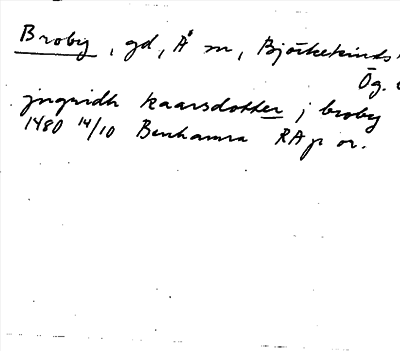 Broby, gd, Å sn, Björkekinds
Ög.
jngridh kaarsdotter j broby
1480 14/10 Benhamra RAp or.